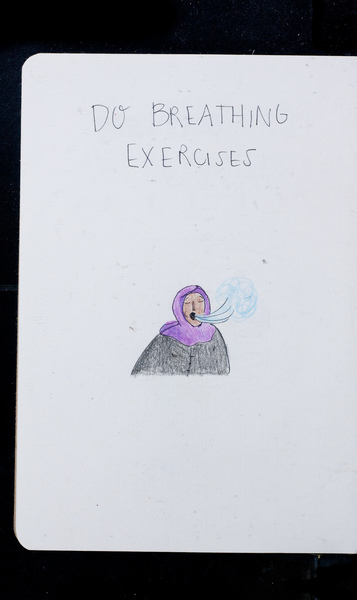 DO BREATHING
EXERCISES